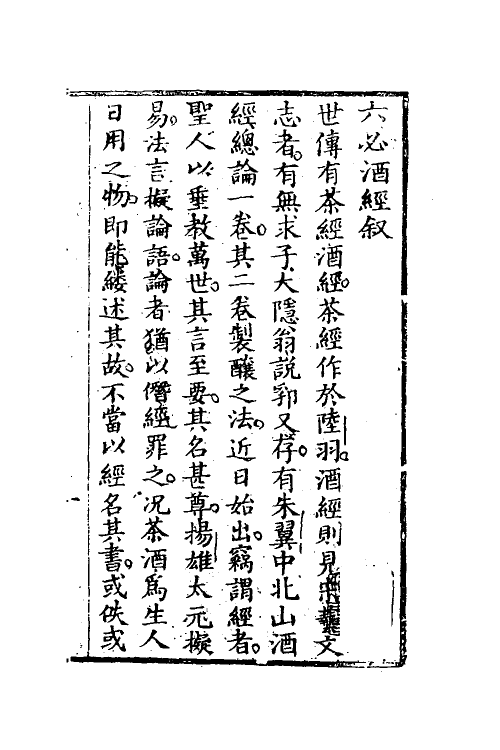 六必酒經叙
世傳有茶經酒經茶經作於陸羽酒經則見宋藝文
志者有無求子大隱翁說郛又存有朱翼中北山酒
經總論一卷其二卷製釀之法近日始出竊謂經者
聖人以垂教萬世其言至要其名甚尊揚雄太元擬
易法言擬論語論者猶以僭經罪之況茶酒為生人
日用之物即能縷述其故不當以經名其書或佚或